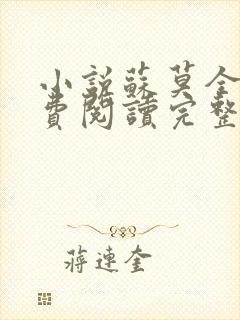 小說蘇莫全
費閱讀完整
蔣連奎